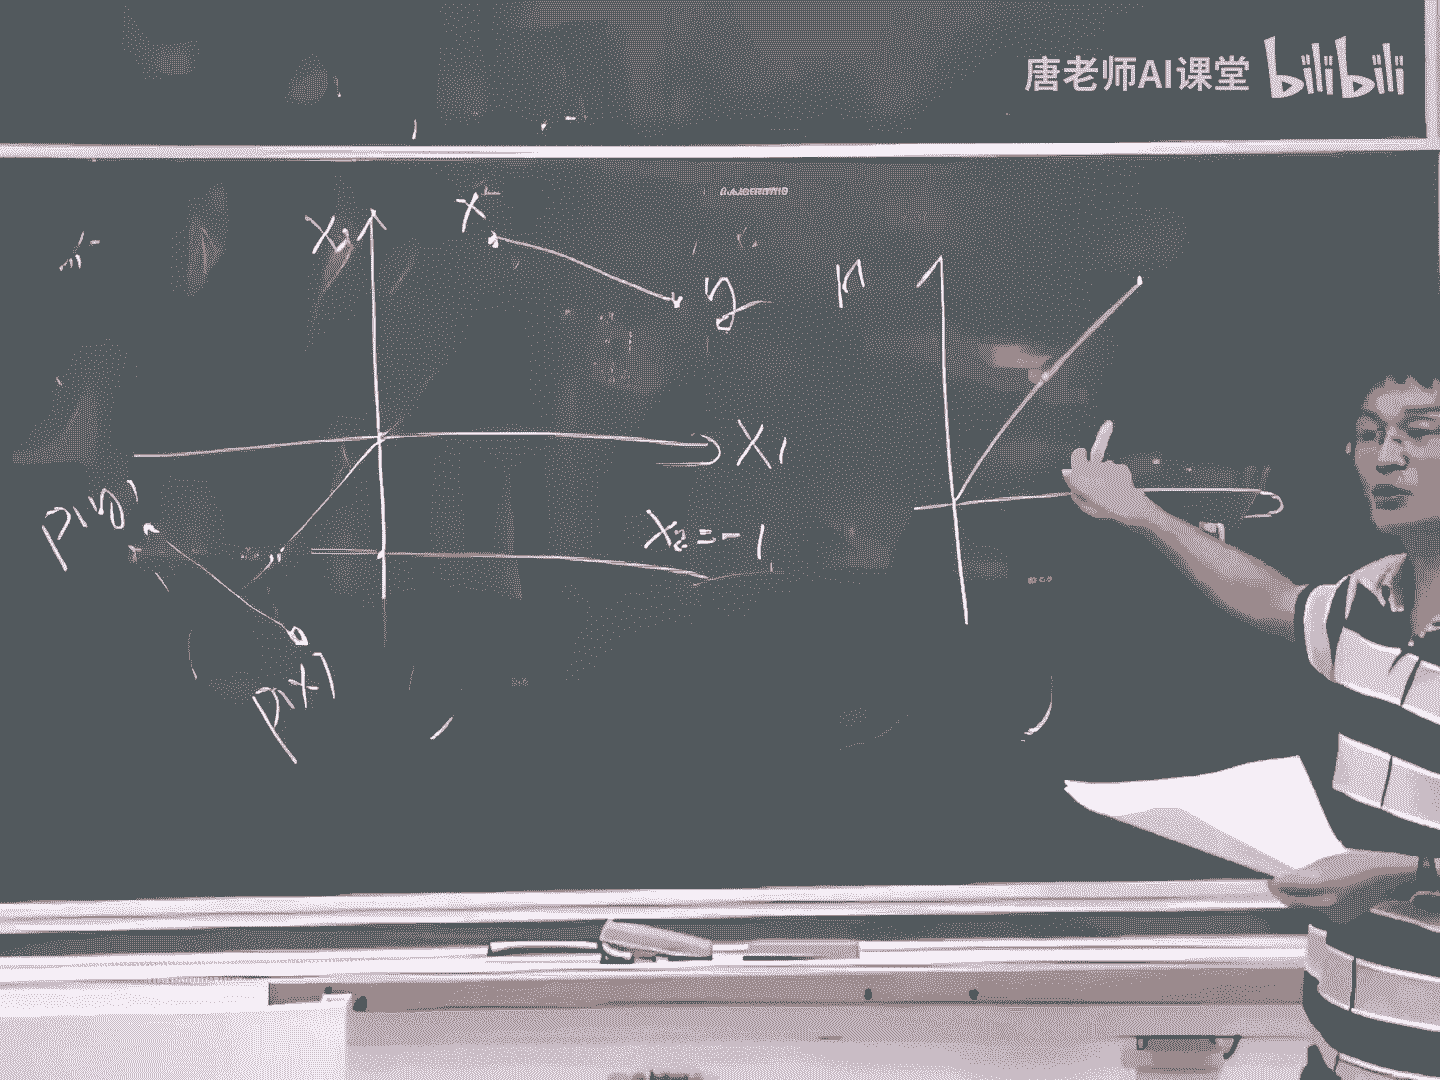 唐老师AI课堂 bilibili
x
y
X1
X2=-1
P(y)
P(x)